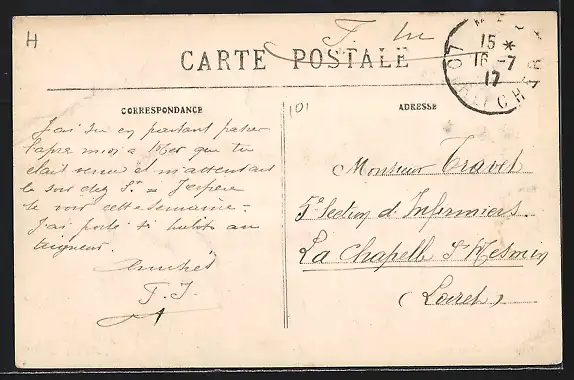 H
F. M
CARTE POSTALE
15 *
16 -7
17
LOIR ET CHER
CORRESPONDANCE
101
ADRESSE
J'ai su en partant passer
l'apres midi a Mer que tu
etait venu et m'attendait
le soir chez St = J'espere
te voir cette semaine =
J'ai porté si au
Amitiés
F. J.
Monsieur Travet
5e Section d Infirmiers
La Chapelle St Mesmin
(Loiret)